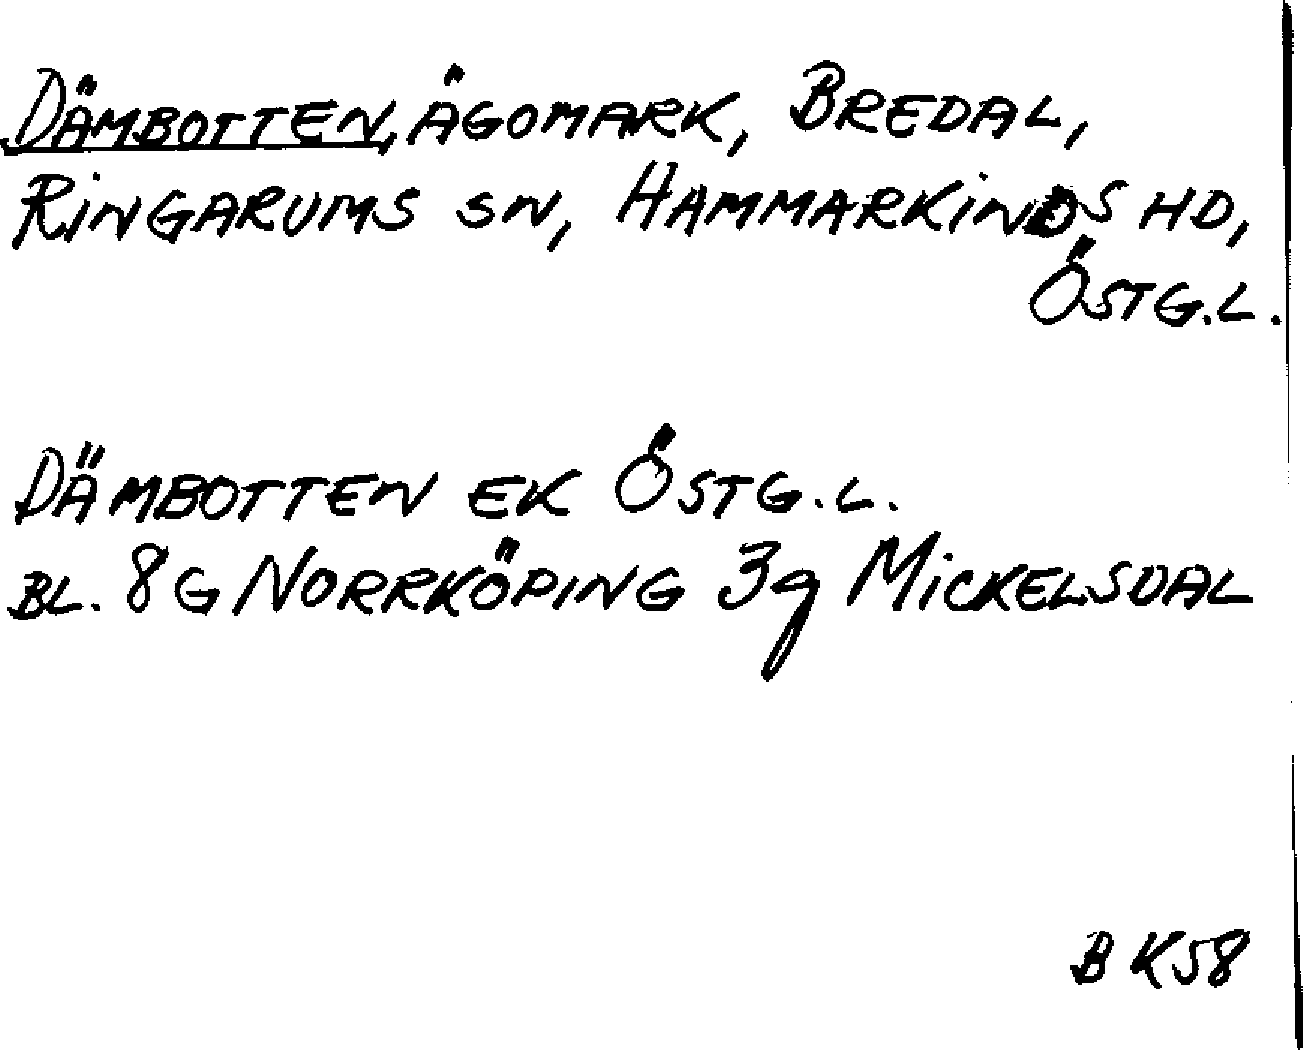 DÄMBOTTEN, ÄGOMARK, BREDAL,
RINGARUMS SN, HAMMARKINDS HD,
ÖSTG.L.
DÄMBOTTEN EK ÖSTG.L.
BL. 8G NORRKÖPING 3g MICKELSDAL
B K58